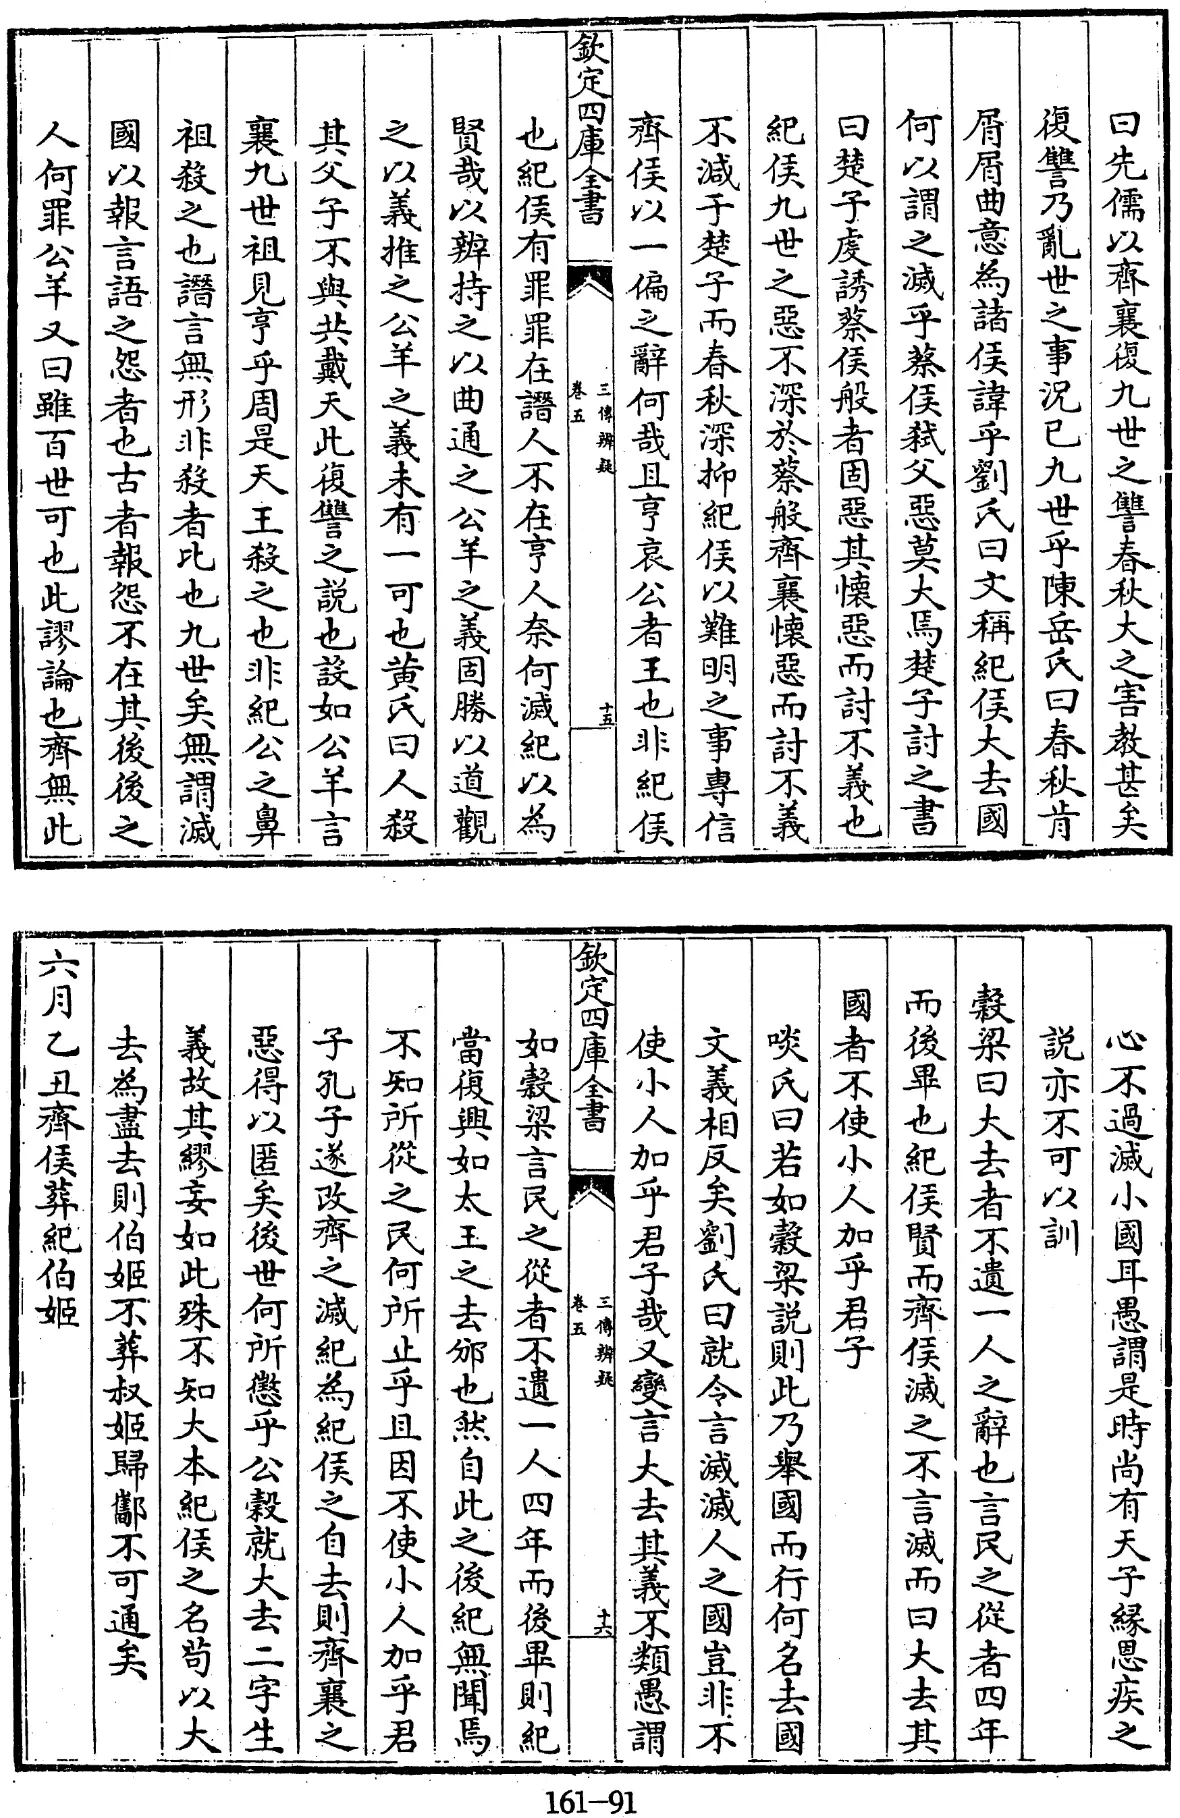 曰先儒以齊襄復九世之讐春秋大之害教甚矣
復讐乃亂世之事況已九世乎陳岳氏曰春秋肯
屑屑曲意為諸侯諱乎劉氏曰文稱紀侯大去國
何以謂之滅乎蔡侯弑父惡莫大焉楚子討之書
曰楚子䖍誘蔡侯般者固惡其懐惡而討不義也
紀侯九世之惡不深於蔡般齊襄懐惡而討不義
不減于楚子而春秋深抑紀侯以難明之事專信
齊侯以一偏之辭何哉且亨哀公者王也非紀侯
欽定四庫全書
三傳辨疑
卷五
十五
也紀侯有罪罪在譖人不在亨人奈何滅紀以為
賢哉以辨持之以曲通之公羊之義固勝以道觀
之以義推之公羊之義未有一可也黄氏曰人殺
其父子不與共戴天此復讐之説也設如公羊言
襄九世祖見亨乎周是天王殺之也非紀公之鼻
祖殺之也譖言無形非殺者比也九世矣無謂滅
國以報言語之怨者也古者報怨不在其後後之
人何罪公羊又曰雖百世可也此謬論也齊無此
心不過滅小國耳愚謂是時尚有天子緣恩疾之
説亦不可以訓
榖梁曰大去者不遺一人之辭也言民之從者四年
而後畢也紀侯賢而齊侯滅之不言滅而曰大去其
國者不使小人加乎君子
啖氏曰若如榖梁説則此乃舉國而行何名去國
文義相反矣劉氏曰就令言滅滅人之國豈非不
使小人加乎君子哉又變言大去其義不類愚謂
欽定四庫全書
三傳辨疑
卷五
十六
如榖梁言民之從者不遺一人四年而後畢則紀
當復興如太王之去邠也然自此之後紀無聞焉
不知所從之民何所止乎且因不使小人加乎君
子孔子遂改齊之滅紀為紀侯之自去則齊襄之
惡得以匿矣後世何所懲乎公榖就大去二字生
義故其繆妄如此殊不知大本紀侯之名苟以大
去為盡去則伯姬不葬叔姬歸酅不可通矣
六月乙丑齊侯葬紀伯姬
161—91